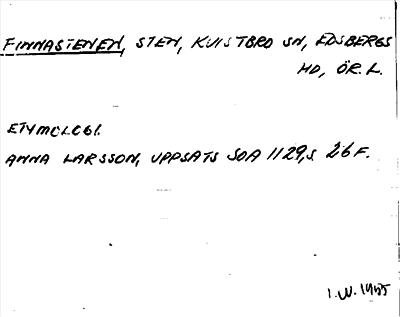 FINNASTENEN, STEN, KVISTBRO SN, EDSBERGS
HD, ÖR. L.
ETYMOLOGI.
ANNA LARSSON, UPPSATS SOA 1129, S 26 F.
I.W. 1955